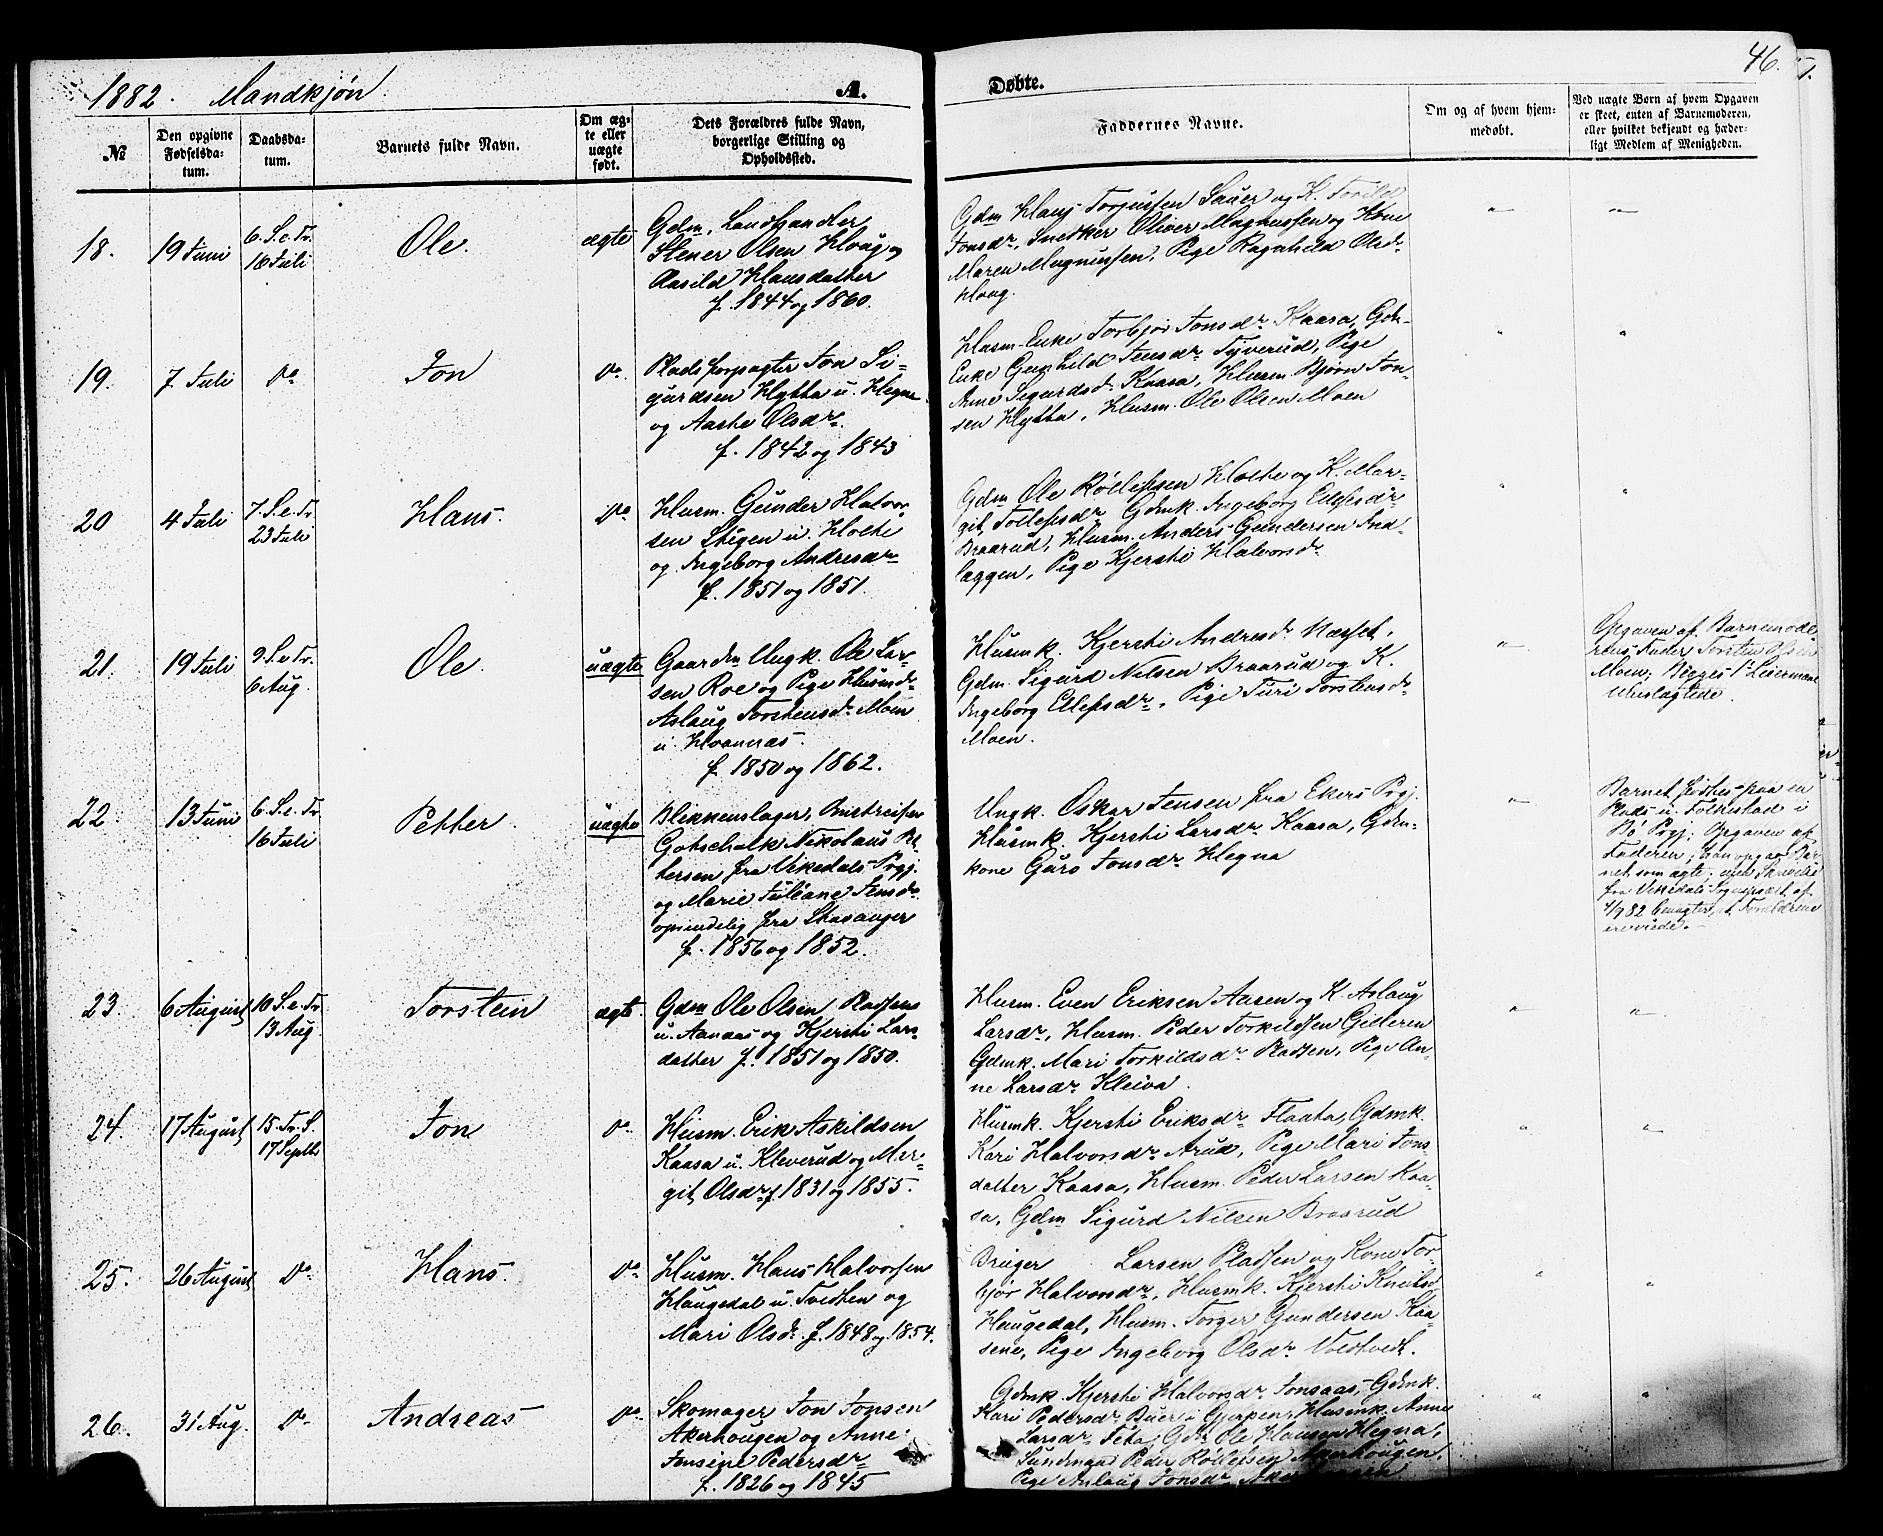 1882. Mandkjøn. A. Døbte. 46.
№
Den opgivne Fødselsdatum.
Daabsdatum.
Barnets fulde Navn.
Om ægte eller uægte født.
Dets Forældres fulde Navn, borgerlige Stilling og Opholdssted.
Faddernes Navne.
Om og af hvem hjemmedøbt.
Ved uægte Børn af hvem Opgaven er skeet, enten af Barnemoderen, eller hvilket bekjendt og hæderligt Medlem af Menigheden.
18. 19 Juni
6. S. e. Tr.
16 Juli
Ole.
ægte
Gdm, Landhandler
Stener Olsen Houg og
Aasild Hansdatter
f. 1844 og 1860.
Gdm Hans Torjussen Sauer og K. Torild
Jonsdr, Snedker Oliver Magnussen og Kone
Maren Magnussen, Pige Ragnhild Olsdr
Houg.
19. 7 Juli
do
Jon
do.
Pladsforpagter Jon Si-
gurdsen Hytta u. Hegna
og Aaste Olsdr.
f. 1842 og 1843
Husm. Enke Torbjør Jonsdr Kaasa, Gdm-
Enke Gunhild Jensdr Tyverud, Pige
Anne Sigurdsd. Kaasa, Husm. Bjørn Jon-
sen Hytta, Husm. Ole Olsen Moen
20 4 Juli
7. S. e. Tr
23 Juli
Hans.
do
Husm. Gunder Halvor-
sen Stigen u. Holte
og Ingeborg Andresdr
f. 1851 og 1851.
Gdm Ole Rollefsen Holte og K. Mar-
git Tollefsdr Gdmk. Ingeborg Ellefsdr
Braarud, Husm. Anders Gundersen Ind-
læggen, Pige Kjersti Halvorsdr
21. 19 Juli
9. S. e. Tr.
6 Aug.
Ole.
uægte
Gaardm. Ungk. Ole Lar-
sen Roe og Pige Husmdr
Aslaug Torstensdr Moen
u. Hvanæs.
f. 1850 og 1862.
Husmk. Kjersti Andresdr Næsset,
Gdm. Sigurd Nilsen Braarud og K.
Ingeborg Ellefsdr, Pige Turi Torstensdr
Moen.
Opgaven af Barnemode-
rens Fader Torsten
Moen; Begges 1ste Leiermaal
Ubeslægtede.
22 13 Juni
6. S. e. Tr
16 Juli
Petter.
uægte
Blikkenslager, Omstreifer
Gotschalk Nikolaus Pe-
tersen fra Vikedals Pgj.
og Marie Juliane Jensdr
opindelig fra Stavanger
f. 1856 og 1852.
Ungk. Oskar Jensen fra Ekers Pgj.
Husmk. Kjersti Larsdr Kaasa, Gdm-
kone Guro Jonsdr Hegna
Barnet fødtes paa en
Plads u. Folkestad i
Bø Pgj. Opgaven af
Faderen; han opgav Bar-
net som ægte;
fra Vikedals Sognepræst af
4/9 82 benægter, at Forældrene
ere viede.
23. 6 August
10 S. e. Tr
13 Aug.
Torstein
ægte.
Gdm Ole Olsen Pladsen
u. Aanæs og Kjersti Lars-
datter f. 1851 og 1850.
Husm. Even Eriksen Aasen og K. Aslaug
Larsdr, Husm. Peder Torkildsen Gilleren
Gdmk. Mari Torkildsdr Pladsen, Pige An-
ne Larsdr Kleiva.
24. 17 August
15. Tr. S.
17 Septbr
Jon
do.
Husm. Erik Askildsen
Kaasa u. Kleverud og Mar-
git Olsdr f. 1831 og 1855.
Husmk. Kjersti Eriksdr Flaata, Gdmk.
Kari Halvorsdr Arud, Pige Mari Jons-
datter Kaasa, Husm. Peder Larsen Kaa-
sa, Gdm Sigurd Nilsen Braarud
25. 26 August
do.
Hans.
do.
Husm. Hans Halvorsen
Haugedal u. Tvedten og
Mari Olsdr. f. 1848 og 1854.
Bruger Larsen Pladsen og Kone Tor-
bjør Halvorsdr, Husmk. Kjersti
Haugedal, Husm. Torger Gundersen Kaa-
sene, Pige Ingeborg Olsdr Voldtvedt.
26. 31 Aug.
do.
Andreas
do.
Skomager Jon Jonsen
Akerhougen og Anne
Jonsine Pedersdr
f. 1826 og 1845
Gdmk. Kjersti Halvorsdr Jonsaas, Gdmk.
Kari Pedersdr Buer i Gjerpen, Husmk. Anne
Larsdr Teta, Gdm Ole Hansen Hegna,
Sundmand Peder Rollefsen Akerhougen,
Pige Aslaug Jonsdr